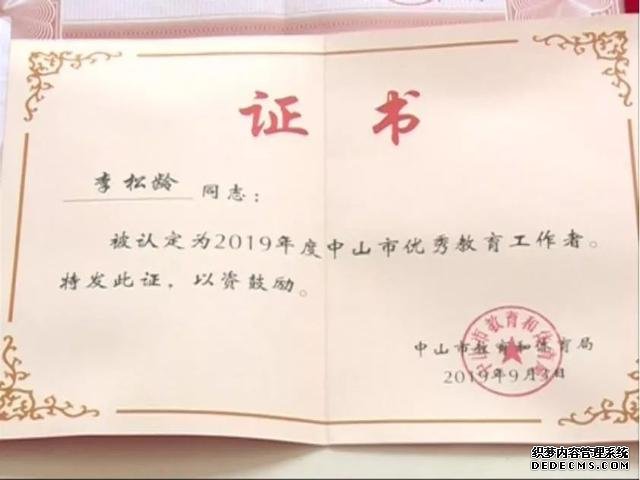 证书
李松龄 同志：
被认定为2019年度中山市优秀教育工作者。
特发此证，以资鼓励。
中山市教育和体育局
2019年9月
织梦内容管理系统
DEDECMS.COM